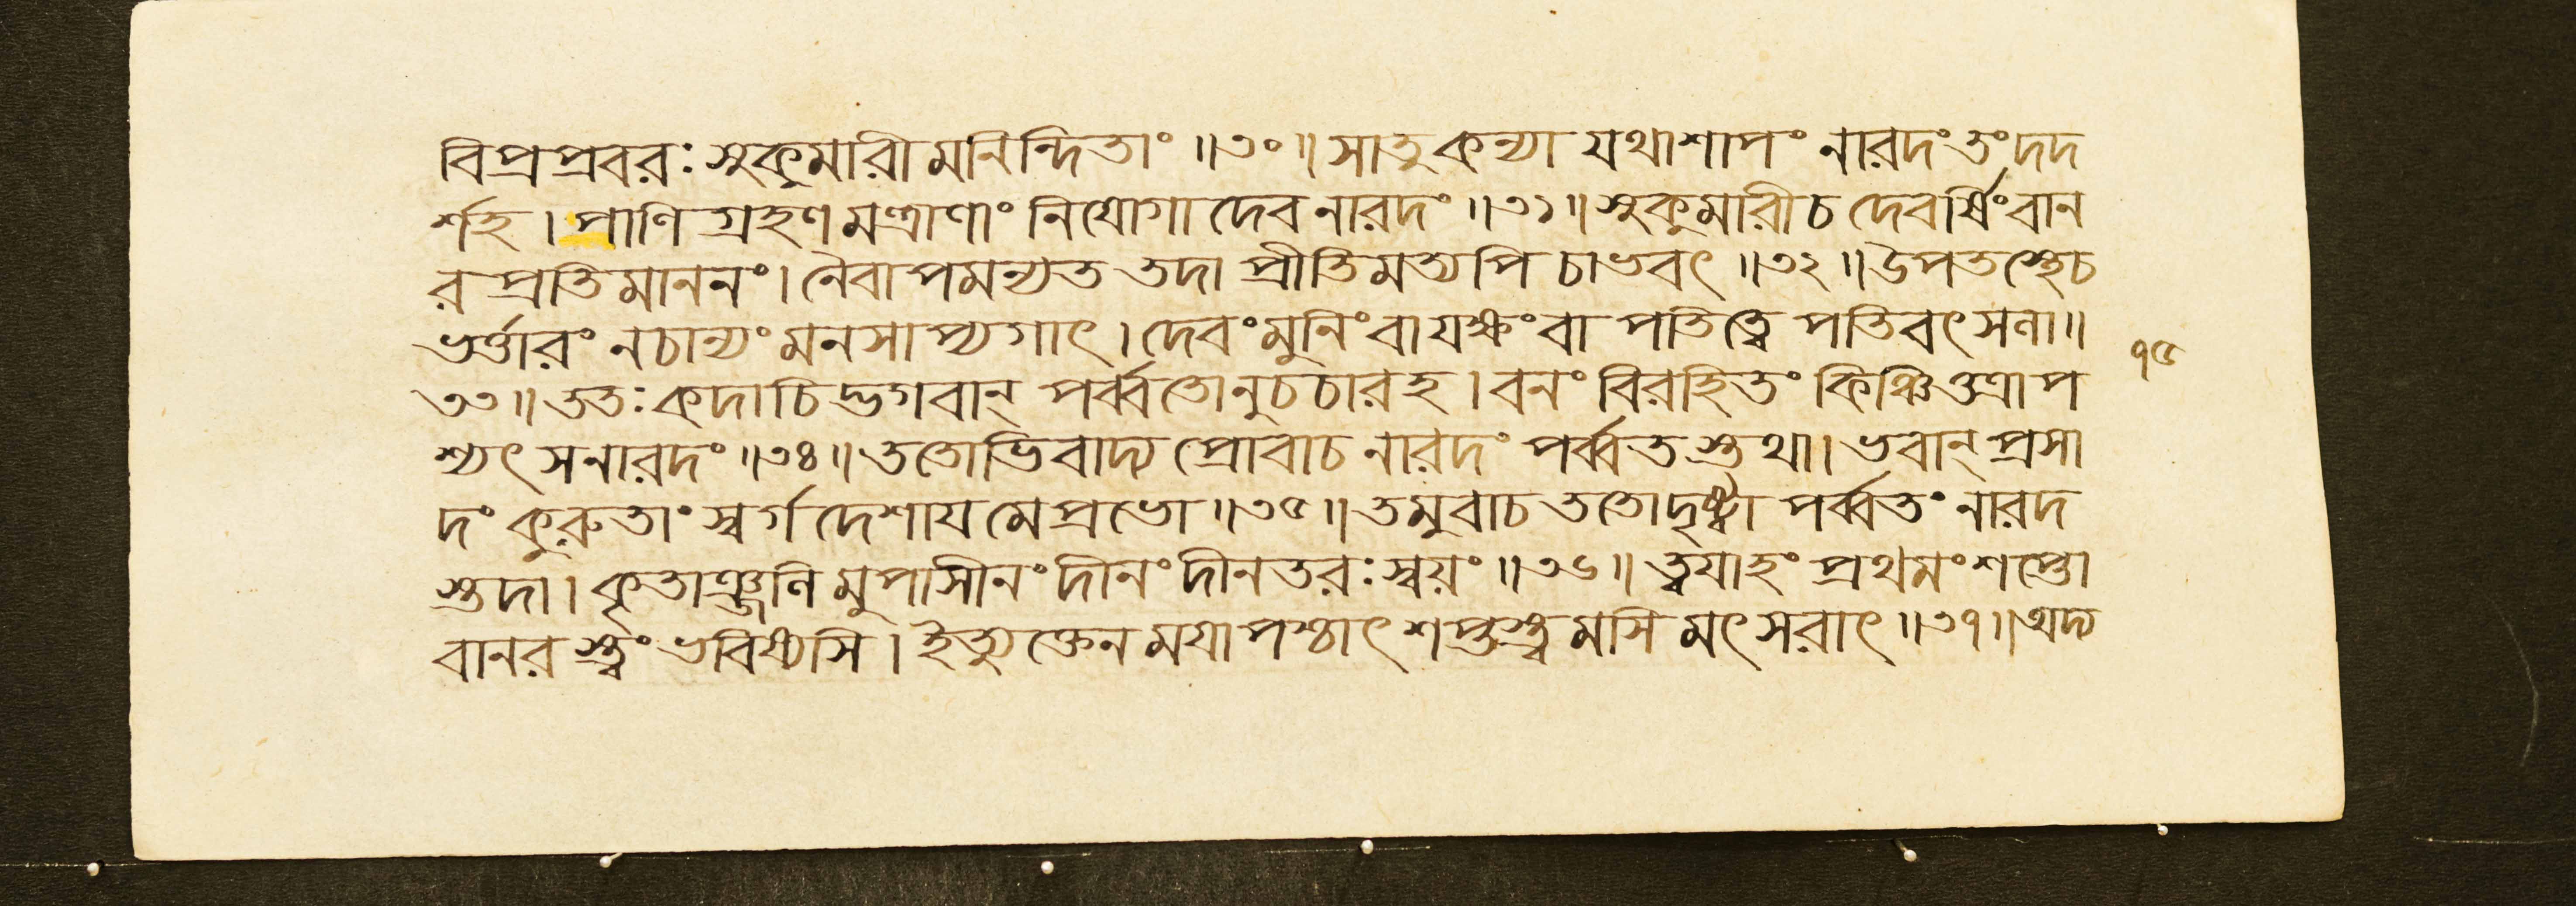 বিপ্রপ্রবরঃ সুকুমারীমনিন্দিতাং ॥৩০॥ সাতুকন্যা যথাশাপং নারদংতংদদ
র্শহ। পাণিগ্রহণমন্ত্রাণাং নিযোগাদেবনারদং ॥৩১॥ সুকুমারীচদেবর্ষিংবান
রপ্রতিমাননং। নৈবাপমন্যত তদা প্রীতিমত্যপি চাভবৎ ॥৩২॥ উপতস্থেচ
ভর্ত্তারং নচান্যং মনসাপ্যগাৎ। দেবংমুনিংবাযক্ষংবা পতিত্বে পতিবৎসলা॥
৩৩॥ ততঃ কদাচিদ্ভগবান্ পর্ব্বতোনুচচারহ। বনং বিরহিতং কিঞ্চিত্তত্রাপ
শ্যৎ সনারদং ॥৩৪॥ ততোভিবাদ্য প্রোবাচ নারদং পর্ব্বতস্তথা। ভবান্ প্রসা
দং কুরুতাং স্বর্গদেশাযমেপ্রভো ॥৩৫॥ তমুবাচ ততোদৃষ্ট্বা পর্ব্বতং নারদ
স্তদা। কৃতাঞ্জলিমুপাসীনং দীনং দীনতরঃ স্বয়ং ॥৩৬॥ ত্বযাহং প্রথমংশপ্তো
বানরস্ত্বং ভবিষ্যসি। ইত্যুক্তেনমযাপশ্চাৎ শপ্তস্ত্বমসি মৎসরাৎ ॥৩৭॥ অদ্য
৭৫